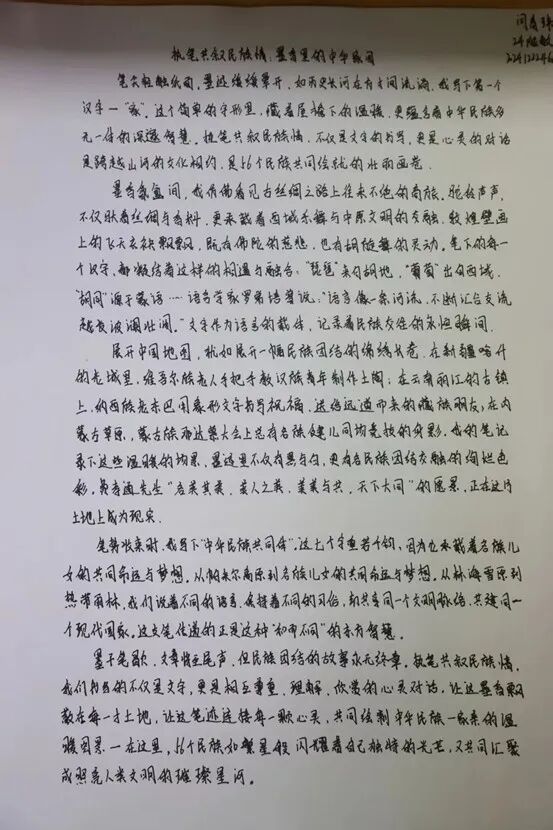 闫
24级
2241222246
执笔共叙民族情，墨香里的中华
笔尖轻触纸面，墨迹缓缓晕开，如历史长河在方寸间流淌，我写下第一个
汉字—“家”。这个简单的字形里，藏着屋檐下的温暖，更蕴含着中华民族多
元一体的深邃智慧。执笔共叙民族情，不仅是文字的书写，更是心灵的对话
是跨越山河的文化相约，是56个民族共同绘就的壮丽画卷
墨香氤氲间，我仿佛看见古丝绸之路上往来不绝的商旅。驼铃声声，
不仅驮着丝绸与香料，更承载着西域乐舞与中原文明的交融，敦煌壁画
上的飞天衣袂飘飘，既有佛陀的慈悲，也有胡旋舞的灵动。笔下的每一
个汉字，都凝结着这样的相遇与融合：“琵琶”来自胡地，“葡萄”出自西域，
“胡同”源于蒙语……语言学家罗常培曾说：“语言像一条河流，不断汇合支流
越发波澜壮阔。”文字作为语言的载体，记录着民族交往的永恒瞬间．
展开中国地图，犹如展开一幅民族团结的锦绣长卷．在新疆喀什
的老城里，维吾尔族老人手把手教汉族青年制作土陶；在云南丽江的古镇
上，纳西族老东巴用象形文字书写祝福，送给远道而来的藏族朋友；在内
蒙古草原，蒙古族那达慕大会上总有各族健儿同场竞技的身影，我的笔记
录下这些温暖的场景，墨迹里不仅有黑与白，更有各民族团结交融的绚烂色
彩，费孝通先生“各美其美，美人之美，美美与共，天下大同”的愿景，正在这片
土地上成为现实．
笔势收束时，我写下“中华民族共同体”，这七个字重若千钧，因为它承载着各族儿
女的共同命运与梦想，从帕米尔高原到各族儿女的共同命运与梦想，从林海雪原到
热带雨林，我们说着不同的语言，保持着不同的习俗，却共享同一个文明脉络，共建同一
个现代国家。这支笔传递的正是这种“和而不同”的东方智慧。
墨干笔歇，文章终至尾声，但民族团结的故事永无终章，执笔共叙民族情，
我们书写的不仅是文字，更是相互尊重、理解、欣赏的心灵对话，让这墨香飘
散在每一寸土地，让这笔迹连接每一颗心灵，共同绘制中华民族一家亲的温
暖图景—在这里，56个民族如繁星般闪耀着自己独特的光芒，又共同汇聚
成照亮人类文明的璀璨星河。